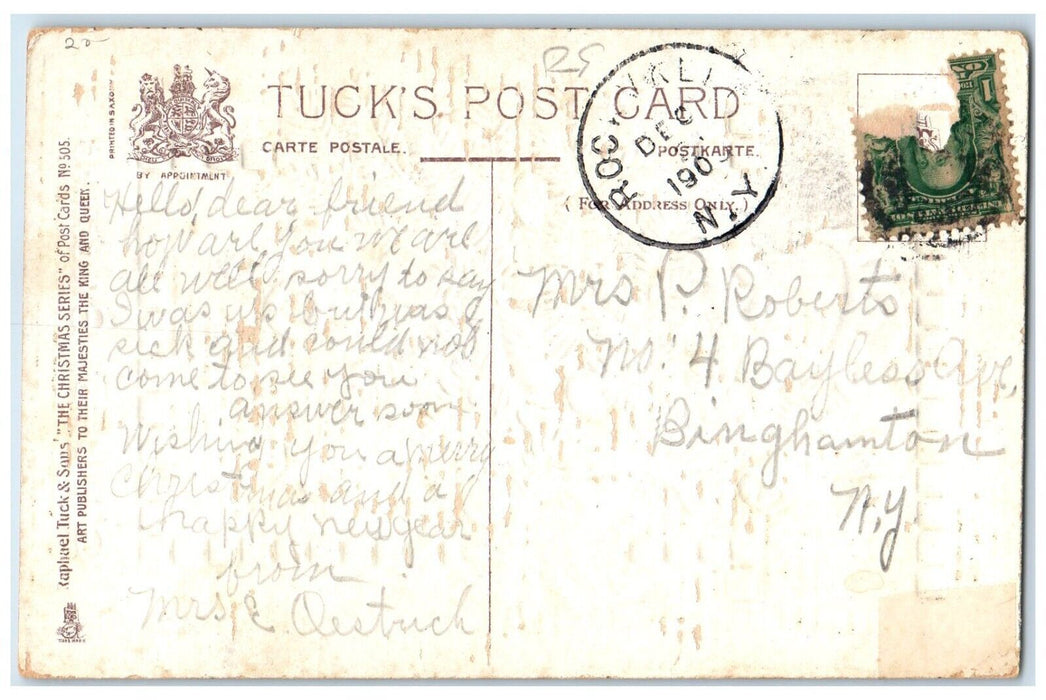 20
25
PRINTED IN SAXONY
BY APPOINTMENT
TUCK'S POST CARD
CARTE POSTALE.
POSTKARTE.
(FOR ADDRESS ONLY.)
DEC
190
N.Y
Raphael Tuck & Sons' "THE CHRISTMAS SERIES" of Post Cards No 505.
ART PUBLISHERS TO THEIR MAJESTIES THE KING AND QUEEN.
TRADE MARK
Hello dear friend
how are you we are
all well sorry to say
I was up but was
sick and could not
come to see you
answer soon
Wishing you a merry
Christmas and a
happy new year
from
Mrs E Oestrich
Mrs P. Roberts
No. 4 Bayless Ave,
Binghamton
N.Y.